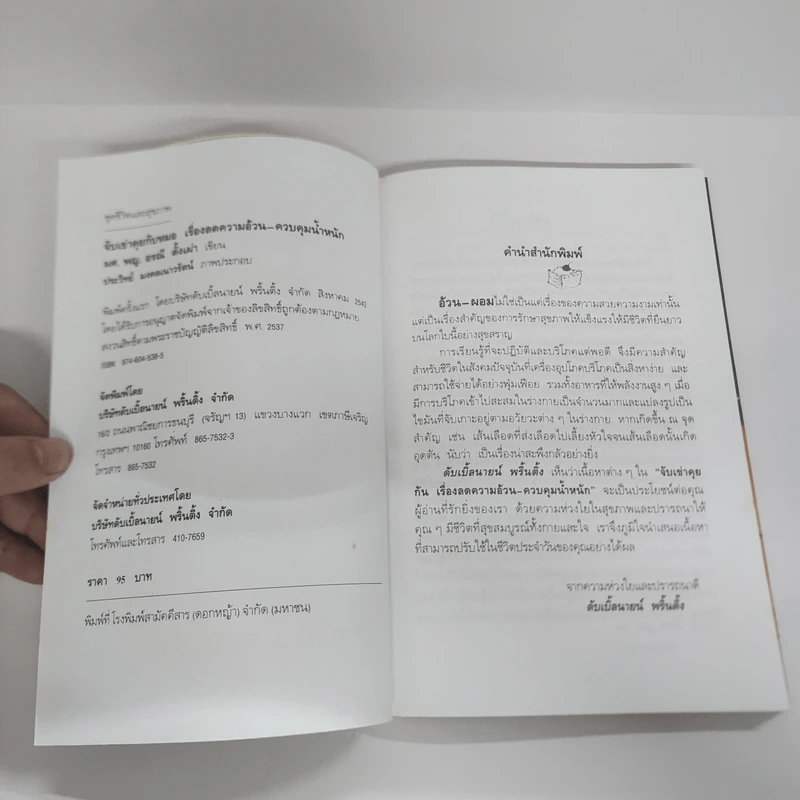 ชุดชีวิตและสุขภาพ
จิบเข่าคุยกับหมอ เรื่องลดความอ้วน-ควบคุมน้ำหนัก
ผศ. พญ. อรณี ตั้งเผ่า เขียน
ประวิทย์ มงคลเนาวรัตน์ ภาพประกอบ
พิมพ์ครั้งแรก โดยบริษัทดับเบิ้ลนายน์ พริ้นติ้ง จำกัด สิงหาคม 2540
โดยได้รับการอนุญาตจัดพิมพ์จากเจ้าของลิขสิทธิ์ถูกต้องตามกฎหมาย
สงวนสิทธิ์ตามพระราชบัญญัติลิขสิทธิ์ พ.ศ. 2537
ISBN 974-604-538-5
จัดพิมพ์โดย
บริษัทดับเบิ้ลนายน์ พริ้นติ้ง จำกัด
16/5 ถนนพาณิชยการธนบุรี (จรัญฯ 13) แขวงบางแวก เขตภาษีเจริญ
กรุงเทพฯ 10160 โทรศัพท์ 865-7532-3
โทรสาร 865-7532
จัดจำหน่ายทั่วประเทศโดย
บริษัทดับเบิ้ลนายน์ พริ้นติ้ง จำกัด
โทรศัพท์และโทรสาร 410-7659
ราคา 95 บาท
พิมพ์ที่ โรงพิมพ์สามัคคีสาร (ดอกหญ้า) จำกัด (มหาชน)
คำนำสำนักพิมพ์
อ้วน-ผอมไม่ใช่เป็นแค่เรื่องของความสวยความงามเท่านั้น
แต่เป็นเรื่องสำคัญของการรักษาสุขภาพให้แข็งแรงให้มีชีวิตที่ยืนยาว
บนโลกใบนี้อย่างสุขสราญ
การเรียนรู้ที่จะปฏิบัติและบริโภคแต่พอดี จึงมีความสำคัญ
สำหรับชีวิตในสังคมปัจจุบันที่เครื่องอุปโภคบริโภคเป็นสิ่งหาง่าย และ
สามารถใช้จ่ายได้อย่างฟุ่มเฟือย รวมทั้งอาหารที่ให้พลังงานสูง ๆ เมื่อ
มีการบริโภคเข้าไปสะสมในร่างกายเป็นจำนวนมากและแปลงรูปเป็น
ไขมันที่จับเกาะอยู่ตามอวัยวะต่าง ๆ ในร่างกาย หากเกิดขึ้น ณ จุด
สำคัญ เช่น เส้นเลือดที่ส่งเลือดไปเลี้ยงหัวใจจนเส้นเลือดนั้นเกิด
อุดตัน นับว่า เป็นเรื่องน่าสะพึงกลัวอย่างยิ่ง
ดับเบิ้ลนายน์ พริ้นติ้ง เห็นว่าเนื้อหาต่าง ๆ ใน "จับเข่าคุย
กัน เรื่องลดความอ้วน-ควบคุมน้ำหนัก" จะเป็นประโยชน์ต่อคุณ
ผู้อ่านที่รักยิ่งของเรา ด้วยความห่วงใยในสุขภาพและปรารถนาให้
คุณ ๆ มีชีวิตที่สุขสมบูรณ์ทั้งกายและใจ เราจึงภูมิใจนำเสนอเนื้อหา
ที่สามารถปรับใช้ในชีวิตประจำวันของคุณอย่างได้ผล
จากความห่วงใยและปรารถนาดี
ดับเบิ้ลนายน์ พริ้นติ้ง